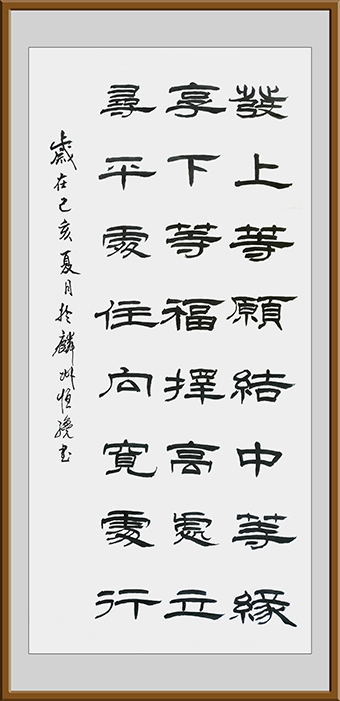 發上等願結中等緣
享下等福擇高處立
尋平處住向寬處行
歲在己亥夏月於麟州恒繞書